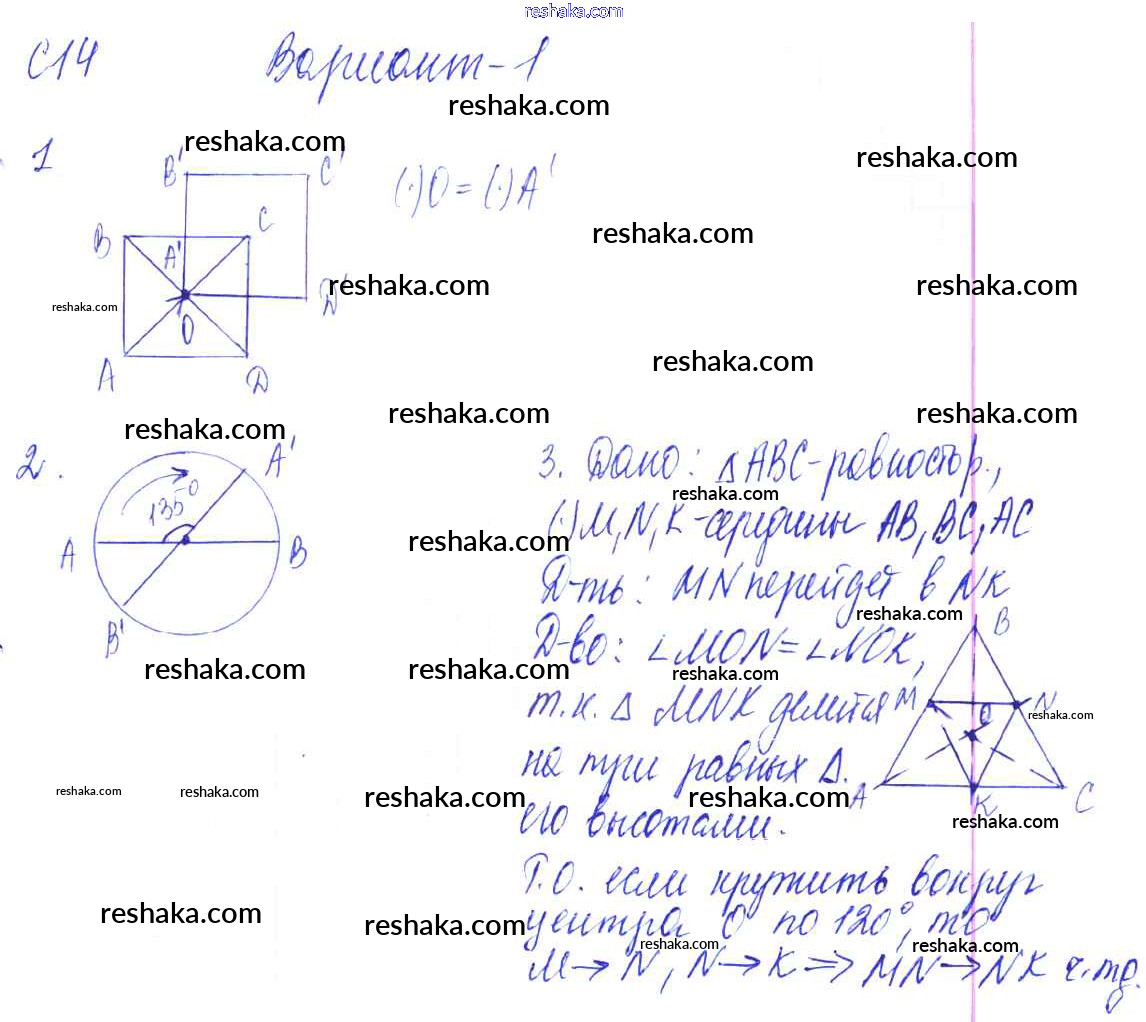 reshaka.com
С14 Вариант-1
reshaka.com
reshaka.com
reshaka.com
1
B' C'
(·)O = (·)A'
B C
A'
reshaka.com
reshaka.com
reshaka.com
reshaka.com
D'
O
A D
reshaka.com
reshaka.com
reshaka.com
reshaka.com
2.
A'
135°
A B
B'
reshaka.com
reshaka.com
reshaka.com
reshaka.com
reshaka.com
reshaka.com
reshaka.com
reshaka.com
3. Дано: △ABC-равностор.,
reshaka.com
(·)M,N,K-середины AB, BC, AC
Д-ть: MN перейдет в NK
reshaka.com
Д-во: ∠MON=∠NOK,
reshaka.com
т.к. △ MNK делится
на три равных △.
reshaka.com
его высотами.
B
M N
O
reshaka.com
A K C
reshaka.com
Т.О. если кружить вокруг
центра O по 120°, то
reshaka.com
reshaka.com
M → N, N → K ⇒ MN → NK ч.тд.